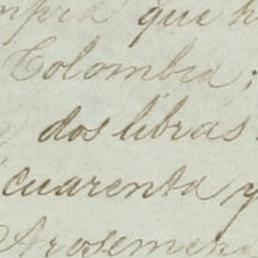 mpra que h
Colombia;
dos libras
cuarenta y
Arosemena